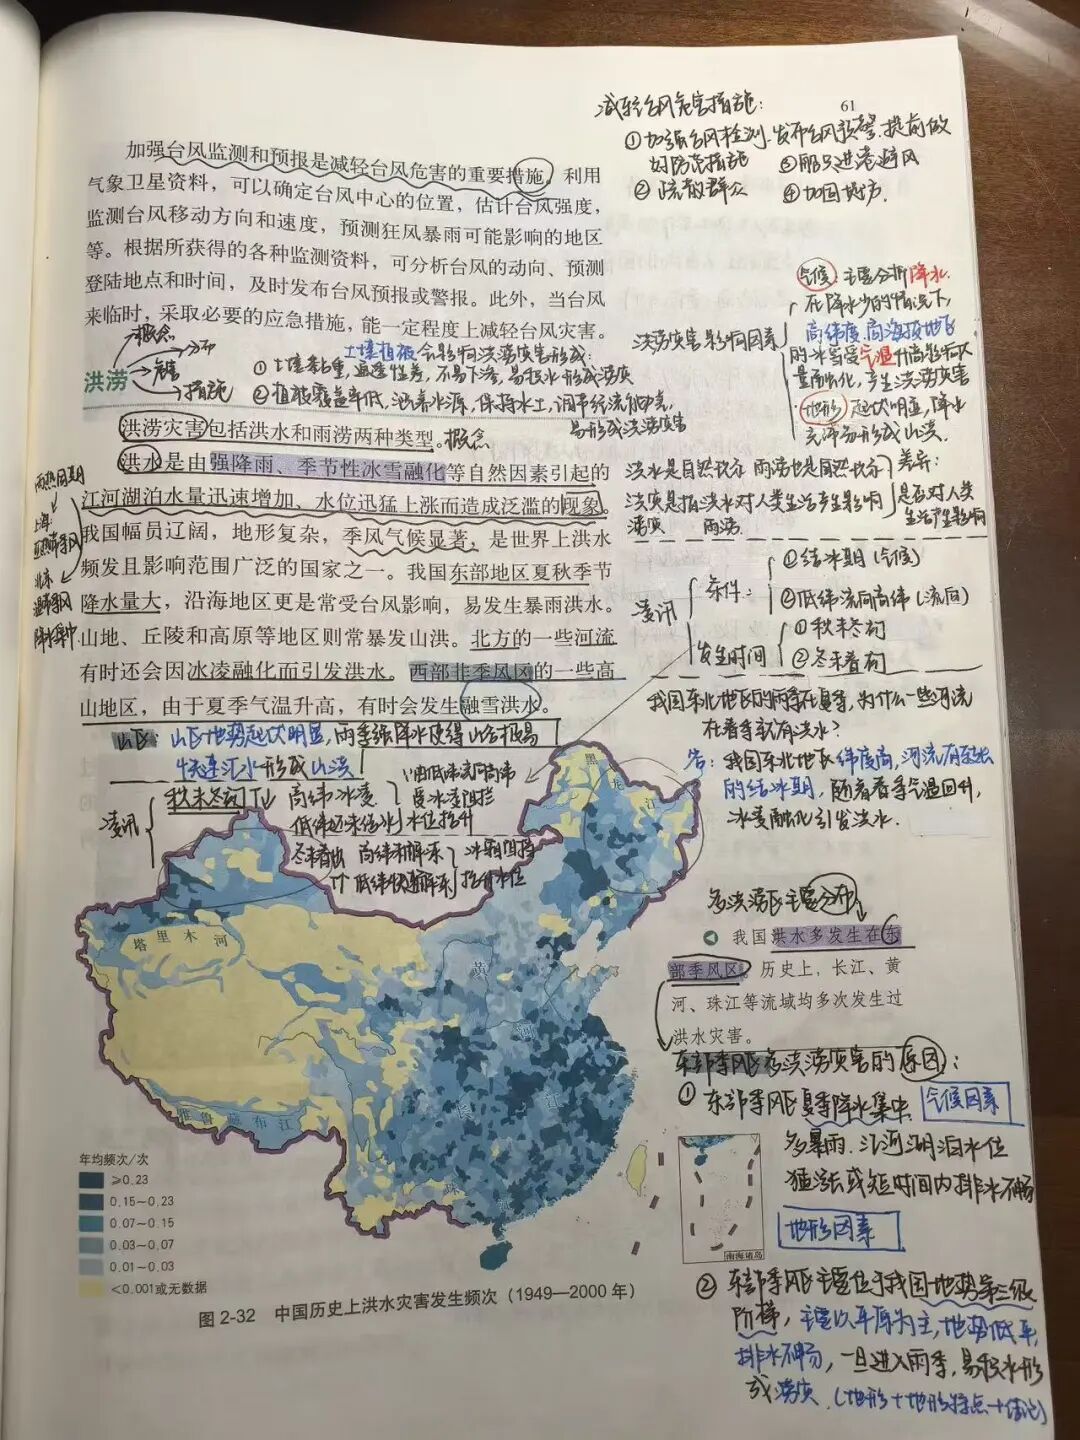 61
减轻台风危害措施：
①加强台风检测，发布台风预警，提前做
好防范措施 ③船只进港避风
②疏散群众 ④加固地方.
加强台风监测和预报是减轻台风危害的重要措施。利用
气象卫星资料，可以确定台风中心的位置，估计台风强度，
监测台风移动方向和速度，预测狂风暴雨可能影响的地区
等。根据所获得的各种监测资料，可分析台风的动向、预测
登陆地点和时间，及时发布台风预报或警报。此外，当台风
来临时，采取必要的应急措施，能一定程度上减轻台风灾害。
洪涝灾害影响因素
气候：主要分析降水.
在降水少的情况下，
高纬度、高海拔地区
的冰雪受气温升高影响大
量融化，产生洪涝灾害
地形 起伏明显，降水
易形成山洪.
概念
分布
危害
措施
洪涝
土壤植被会影响洪涝灾害形成：
①土壤黏重，通透性差，不易下渗，易积水形成洪涝灾
②植被覆盖率低，涵养水源，保持水土，调节径流能力差，
易形成洪涝灾害
洪涝灾害包括洪水和雨涝两种类型。概念
洪水是由强降雨、季节性冰雪融化等自然因素引起的
江河湖泊水量迅速增加、水位迅猛上涨而造成泛滥的现象。
我国幅员辽阔，地形复杂，季风气候显著，是世界上洪水
频发且影响范围广泛的国家之一。我国东部地区夏秋季节
降水量大，沿海地区更是常受台风影响，易发生暴雨洪水。
山地、丘陵和高原等地区则常暴发山洪。北方的一些河流
有时还会因冰凌融化而引发洪水。西部非季风区的一些高
山地区，由于夏季气温升高，有时会发生融雪洪水。
雨热同期
上海：
亚热带季风
北京
温带季风
降水集中
洪水是自然状态 雨涝也是自然状态
洪灾是指洪水对人类生活产生影响
涝灾 雨涝
差异：
是否对人类
生活产生影响
凌汛
条件：
①结冰期（气候）
②低纬流向高纬（流向）
发生时间
①秋末冬初
②冬末春初
我国东北地区的雨季在夏季，为什么一些河流
在春季就有洪水？
答：我国东北地区纬度高，河流有较长
的结冰期，随着春季气温回升，
冰凌融化引发洪水.
山区：山区地势起伏明显，雨季强降水使得山谷极易
快速汇水形成山洪
凌汛
秋末冬初T↓ 高纬冰凌
低纬还未结冰
由低纬流向高纬
受冰凌阻拦
水位抬升
冬末春初 高纬未解冻
T↑ 低纬快速解冻
冰凌阻挡
抬升水位
多洪涝区主要分布
我国洪水多发生在东
部季风区。历史上，长江、黄
河、珠江等流域均多次发生过
洪水灾害。
东部季风区多洪涝灾害的原因：
①东部季风区夏季降水集中. 气候因素
多暴雨. 江河湖泊水位
猛涨或短时间内排水不畅
地形因素
②东部季风区主要位于我国地势第三级
阶梯，主要以平原为主，地势低平，
排水不畅，一旦进入雨季，易积水形
成涝灾.（地形+地形特点+结论）
黑
龙
江
塔里木河
黄
河
长
江
雅鲁藏布江
珠
江
南海诸岛
年均频次/次
≥0.23
0.15～0.23
0.07～0.15
0.03～0.07
0.01～0.03
＜0.001或无数据
图 2-32 中国历史上洪水灾害发生频次（1949—2000 年）